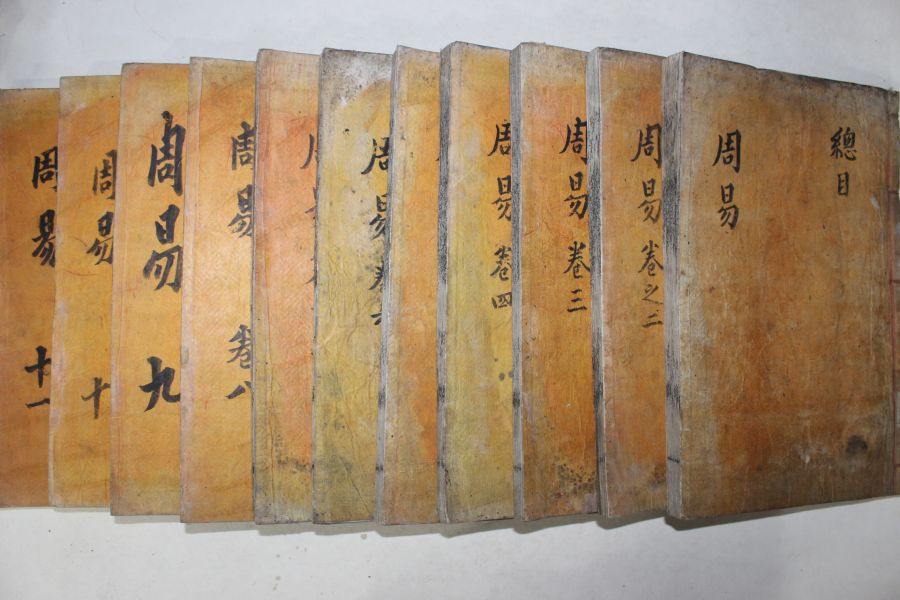 總目
周易
周易卷之二
周易卷三
周易卷四
周易卷六
周易卷八
周易九
周易十
周易十一